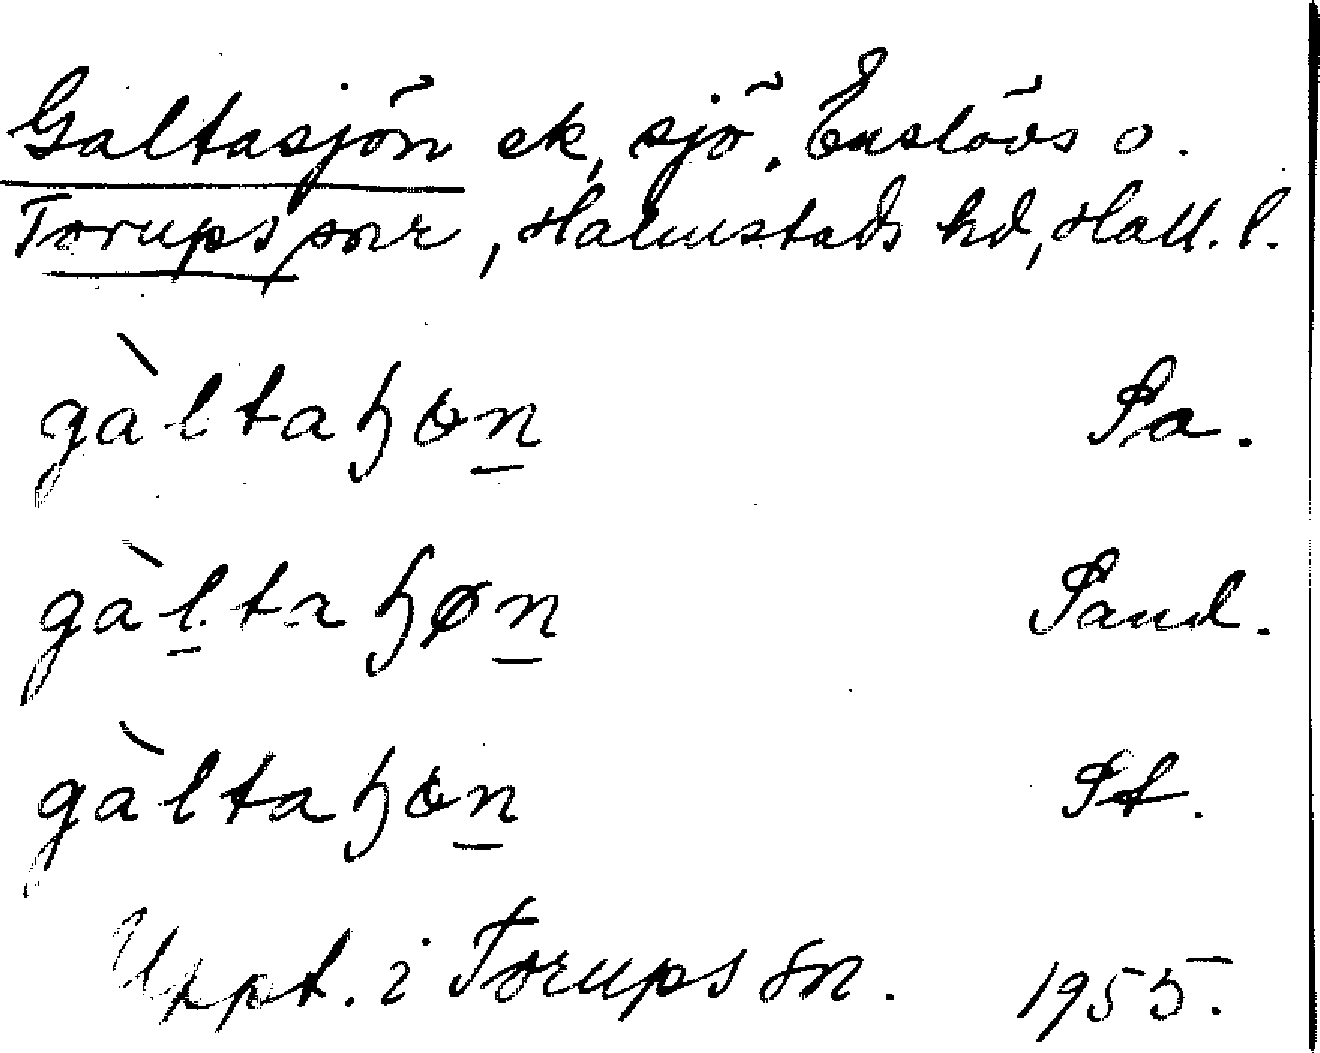 Galtasjön ek, sjö. Enslövs o.
Torups snr, Halmstads hd, Hall. l.
gàltaɧɵn Pa.
gàltaɧøn Pand.
gàltaɧɵn Pt.
Uppt. i Torups sn. 1955.